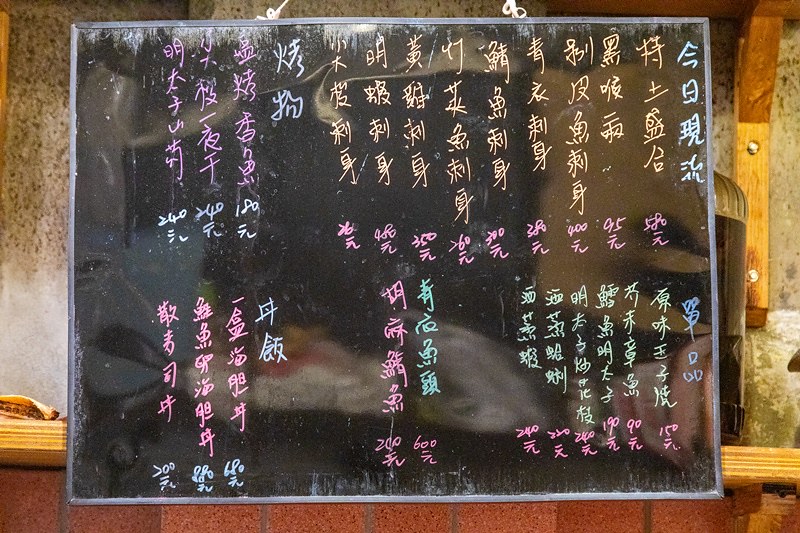 今日現流
特上盛合 580元
黑喉兩 95元
剝皮魚刺身 400元
青衣刺身 380元
鯖魚刺身 300元
竹莢魚刺身 260元
黃雞刺身 350元
明蝦刺身 480元
尖梭刺身
烤物
塩烤香魚 180元
尖梭一夜干 240元
明太子山药 240元
單品
原味玉子燒 150元
芥末章魚 90元
鱈魚明太子 190元
明太子炒花枝 240元
酒蒸蛤蜊 220元
酒蒸蝦 240元
青衣魚頭 600元
胡麻鯖魚 280元
丼飯
一盒海胆丼 680元
鮭魚卵海胆丼 880元
散寿司丼 300元